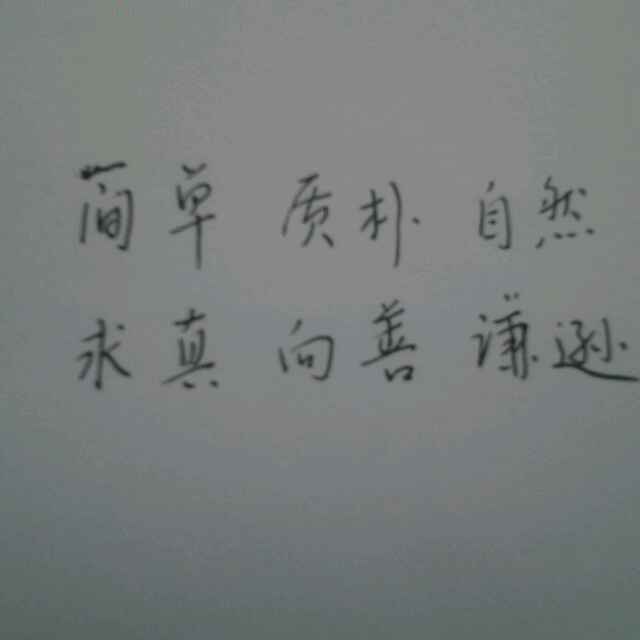 简单 质朴 自然
求真 向善 谦逊